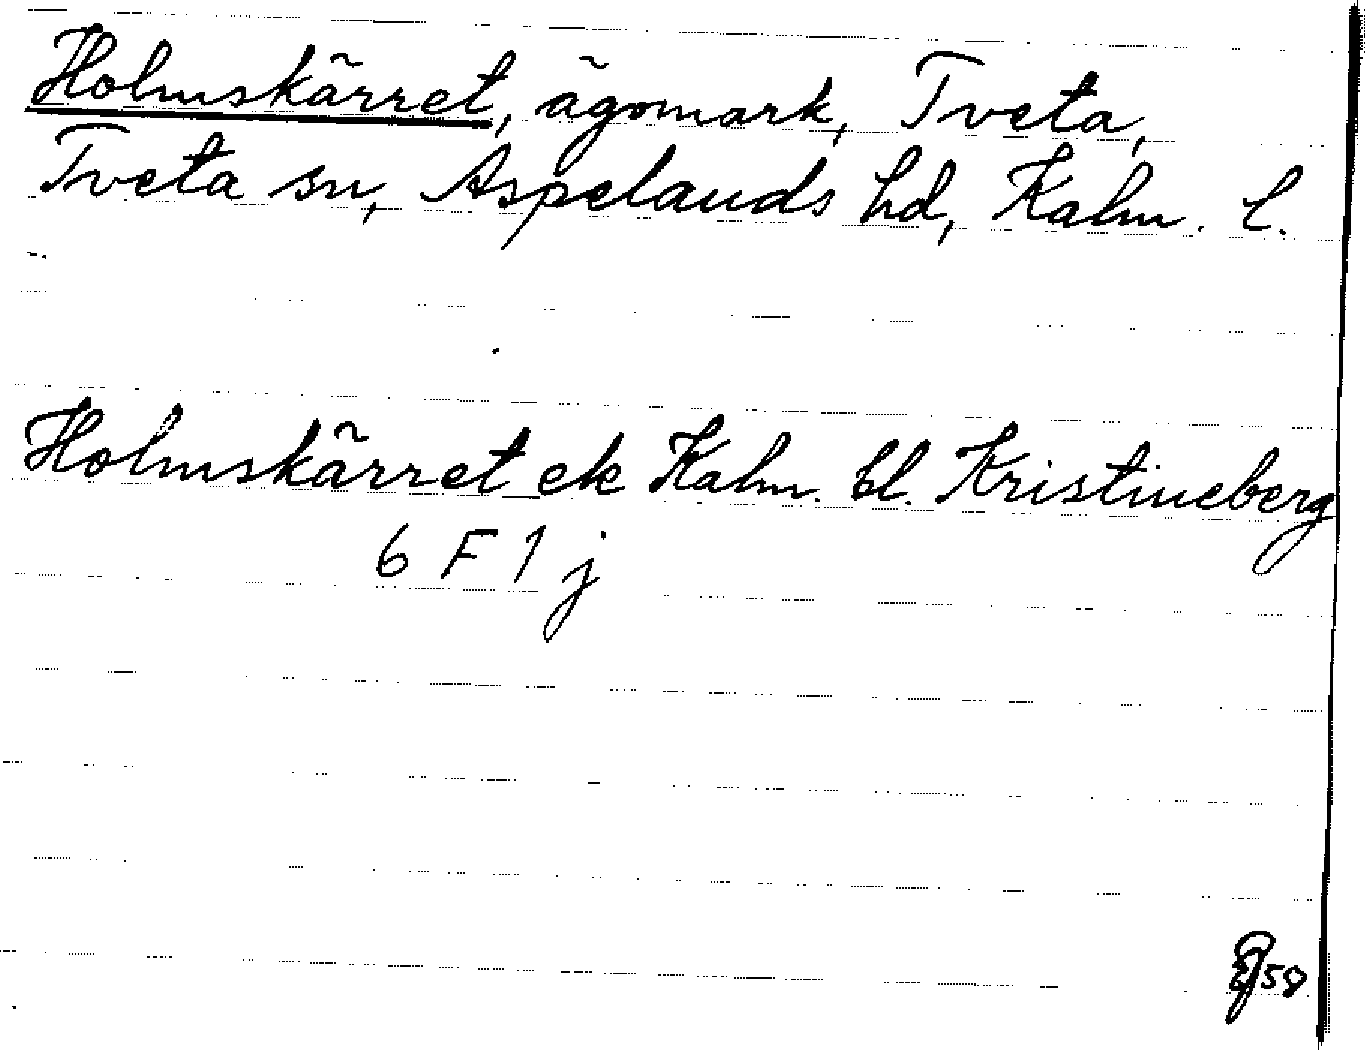 Holmskärret, ägomark, Tveta,
Tveta sn, Aspelands hd, Kalm. l.
Holmskärret ek Kalm. bl. Kristineberg
6 F 1 j
58